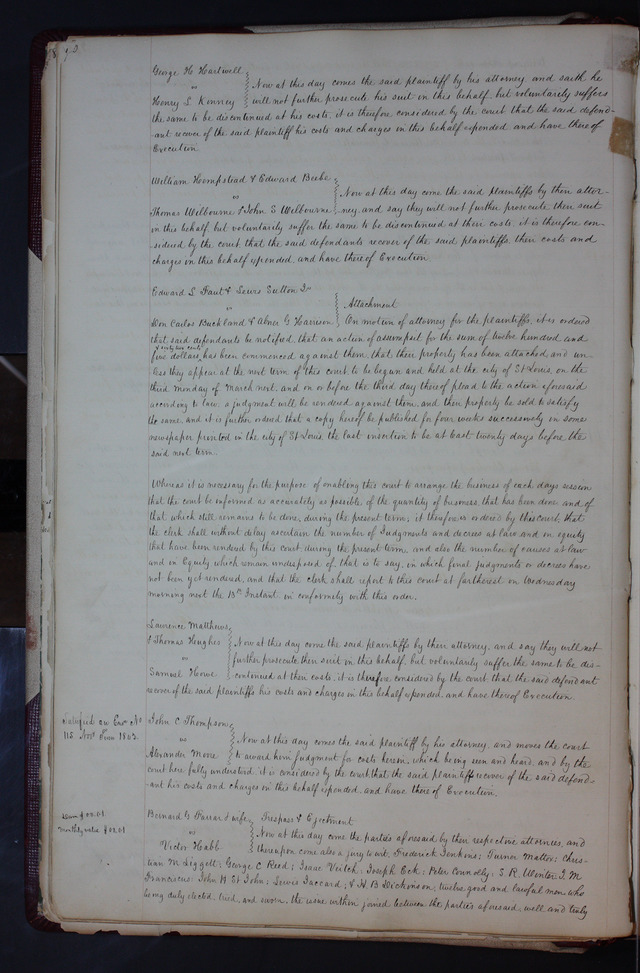 George H Hartwell
vs
Henry L Kenney
Now at this day comes the said plaintiff by his attorney and saith he
will not further prosecute his suit in this behalf, but voluntarily suffers
the same to be discontinued at his costs, it is therefore considered by the court that the said defend-
-ant recover of the said plaintiff his costs and charges in this behalf expended and have thereof
Execution
William Hempstead & Edward Beebe
vs
Thomas Wilbourne & John S Wilbourne
Now at this day come the said plaintiffs by their attor-
ney, and say they will not further prosecute their suit
in this behalf but voluntarily suffer the same to be discontinued at their costs, it is therefore con-
sidered by the court that the said defendants recover of the said plaintiffs their costs and
charges in this behalf expended, and have thereof Execution
Edward L & Lewis Sutton Jr
vs
Don Carlos Buckland & Abner G Harrison
Attachment
On motion of attorney for the plaintiffs, it is ordered
that said defendants be notified, that an action of assumpsit for the sum of twelve hundred and
five dollars & cents has been commenced against them, that their property has been attached, and un-
less they appear at the next term of this court to be begun and held at the city of St Louis, on the
third Monday of March next, and on or before the third day thereof plead to the action aforesaid
according to law, a judgment will be rendered against them, and their property be sold to satisfy
the same, and it is further ordered that a copy hereof be published for four weeks successively in some
newspaper printed in the city of St Louis, the last insertion to be at least twenty days before the
said next term.
Whereas it is necessary for the purpose of enabling this court to arrange the business of each days session
that the court be informed as accurately as possible of the quantity of business, that has been done, and of
that which still remains to be done, during the present term; it therefore is ordered by this court, that
the clerk shall without delay ascertain the number of Judgments and decrees at law and in equity
that have been rendered by this court during the present term, and also the number of causes at law
and in Equity which remain undisposed of, that is to say, in which final judgments or decrees have
not been yet rendered, and that the clerk shall report to this court at farthest on Wednesday
morning next the 13th Instant in conformity with this order.
Lawrence Matthews,
& Thomas Hughes
vs
Samuel Howe
Now at this day come the said plaintiffs by their attorney, and say they will not
further prosecute their suit in this behalf, but voluntarily suffer the same to be dis-
continued at their costs, it is therefore considered by the court that the said defendant
recover of the said plaintiffs his costs and charges in this behalf expended, and have thereof Execution
Satisfied see Exn No
115 Novr Term 1842
John C Thompson
vs
Alexander Moore
Now at this day comes the said plaintiff by his attorney, and moves the court
to award him judgment for costs herein, which being seen and heard, and by the
court here fully understood, it is considered by the court that the said plaintiff recover of the said defend-
ant his costs and charges on this behalf expended, and have thereof Execution.
Bernard G Farrar & wife
vs
Victor Habb
Trespass & Ejectment
Now at this day come the parties aforesaid by their respective attornies, and
thereupon come also a jury to wit, Frederick Jenkins; Turner Mattox; Chris-
tian M Liggett; George C Reed; Isaac Veitch; Joseph Cok; Peter Connolly; S. R. Wenter; J. M.
Franciscus; John H St John; Lewis Jaccard; & H. B Dickenson; twelve good and lawful men who
being duly elected, tried, and sworn, the issue within joined between the parties aforesaid, well and truly
monthly value $00.01